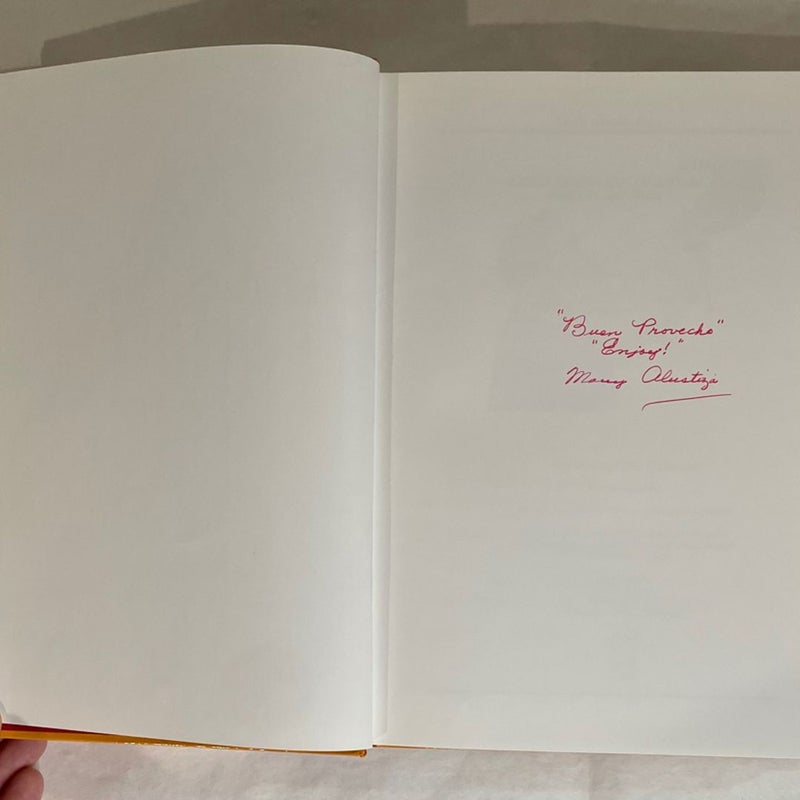 "Buen Provecho"
"Enjoy!"
Alustiza